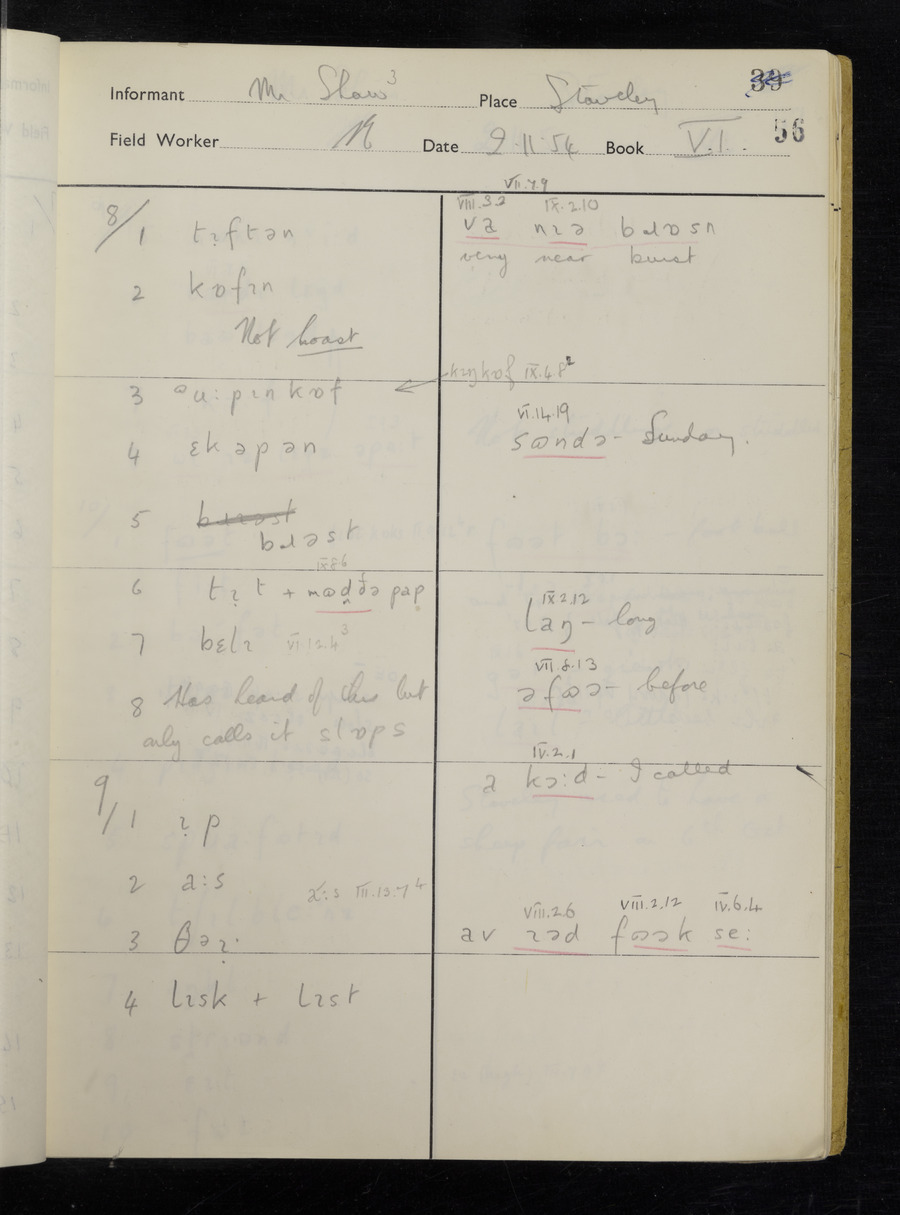 Informant Mr Shaw 3 Place Staveley 39
Field Worker Date 9.11.54 Book VI. 56
8/1 tɪftən
2 kɒfɪn
Not hoast
3 ᵊu:pɪnkɒf
4 ɛkəpən
5 bɹɪəst
bɹəst
IX.8.6
6 tɪt + mɷðə pap
7 bɛlɪ VI.12.4 3
8 Has heard of this but
only calls it slɒps
9/1 ɪp
2 a:s a:s III.13.7 4
3 θəɪ.
4 lɪsk + lɪst
VII.7.9
VIII.3.2 IX.2.10
va nɪə bɹɒsn
very near burst
kɪŋkɒf IX.4.8 2
VI.14.19
sɷndə - Sunday.
IX.2.12
laŋ - long
VII.8.13
əfɷə - before
IV.2.1
a kɔ:d - I called
VIII.2.6 VIII.2.12 IV.6.4
av ɪəd fɷək se: